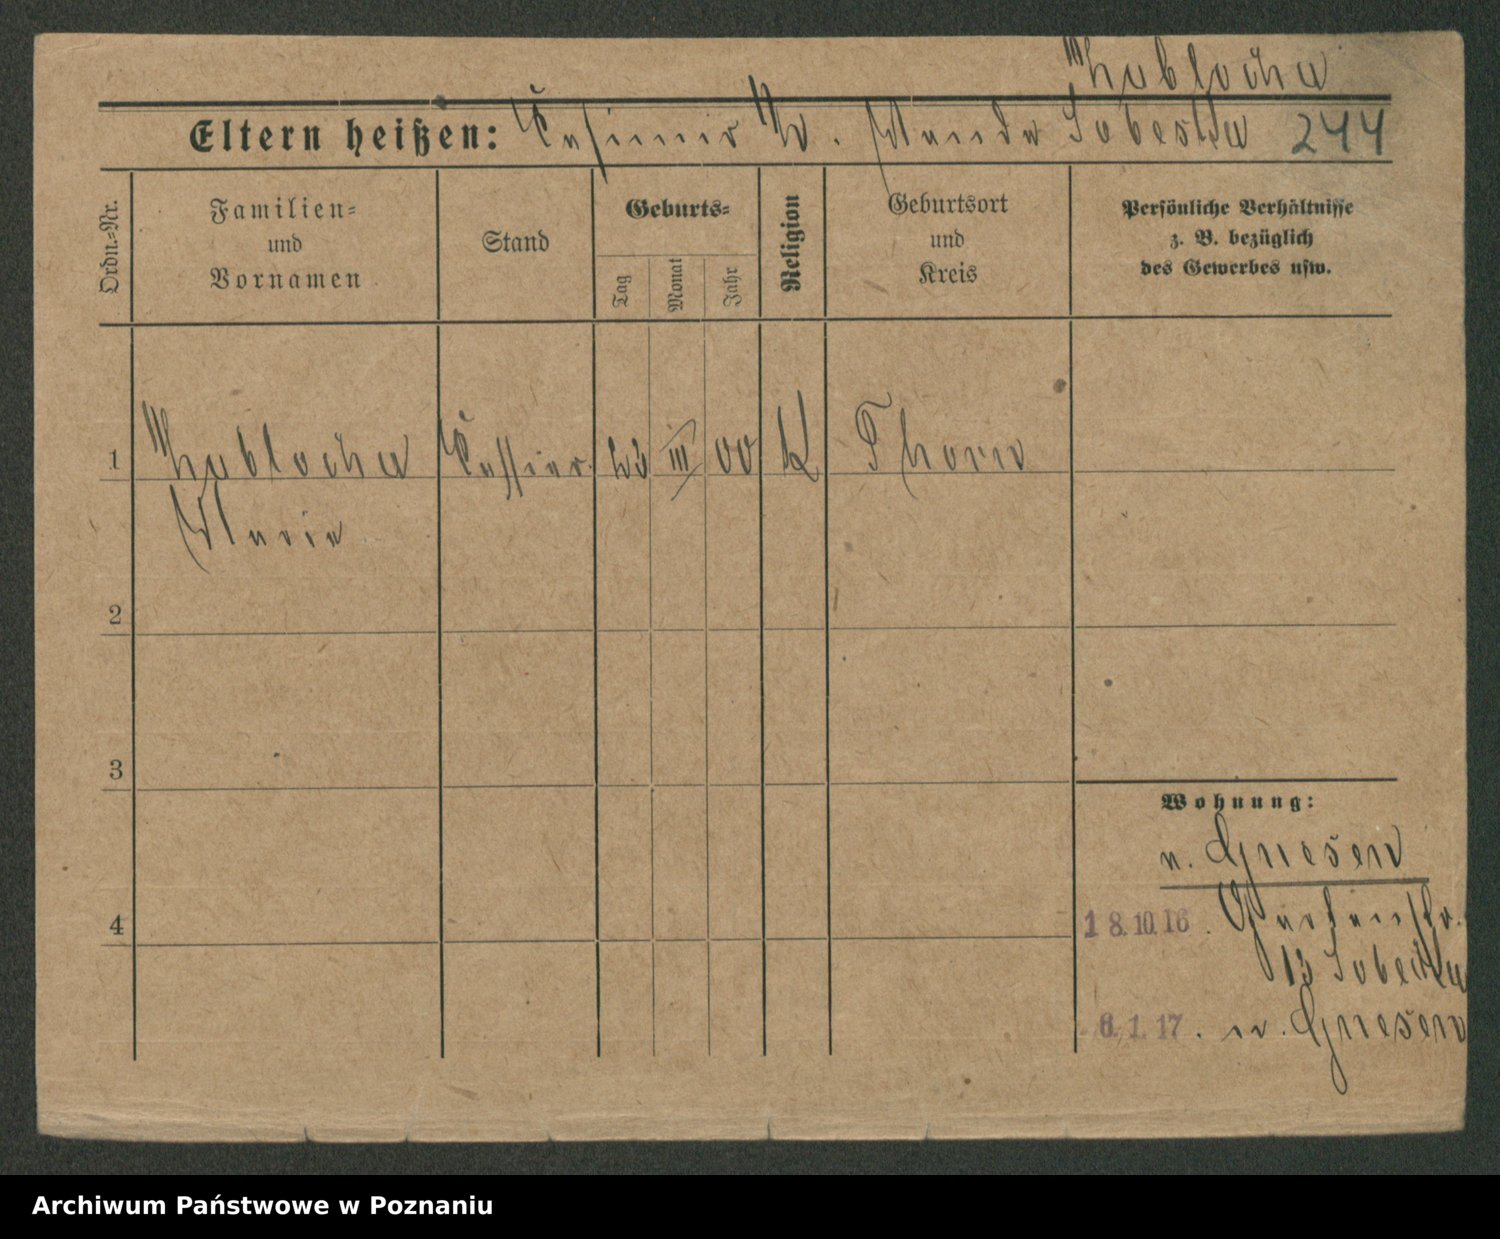 Eltern heißen: Casimir W. Wanda Sobeska 244
Ordn.-Nr.
Familien-
und
Vornamen
Stand
Geburts-
Tag
Monat
Jahr
Religion
Geburtsort
und
Kreis
Persönliche Verhältnisse
z. B. bezüglich
des Gewerbes usw.
1 III 00 K Thorn
Marie
2
3
4
Wohnung:
n. Gnesen
18.10.16. Gartenstr.
13
6.1.17. n. Gnesen
Archiwum Państwowe w Poznaniu